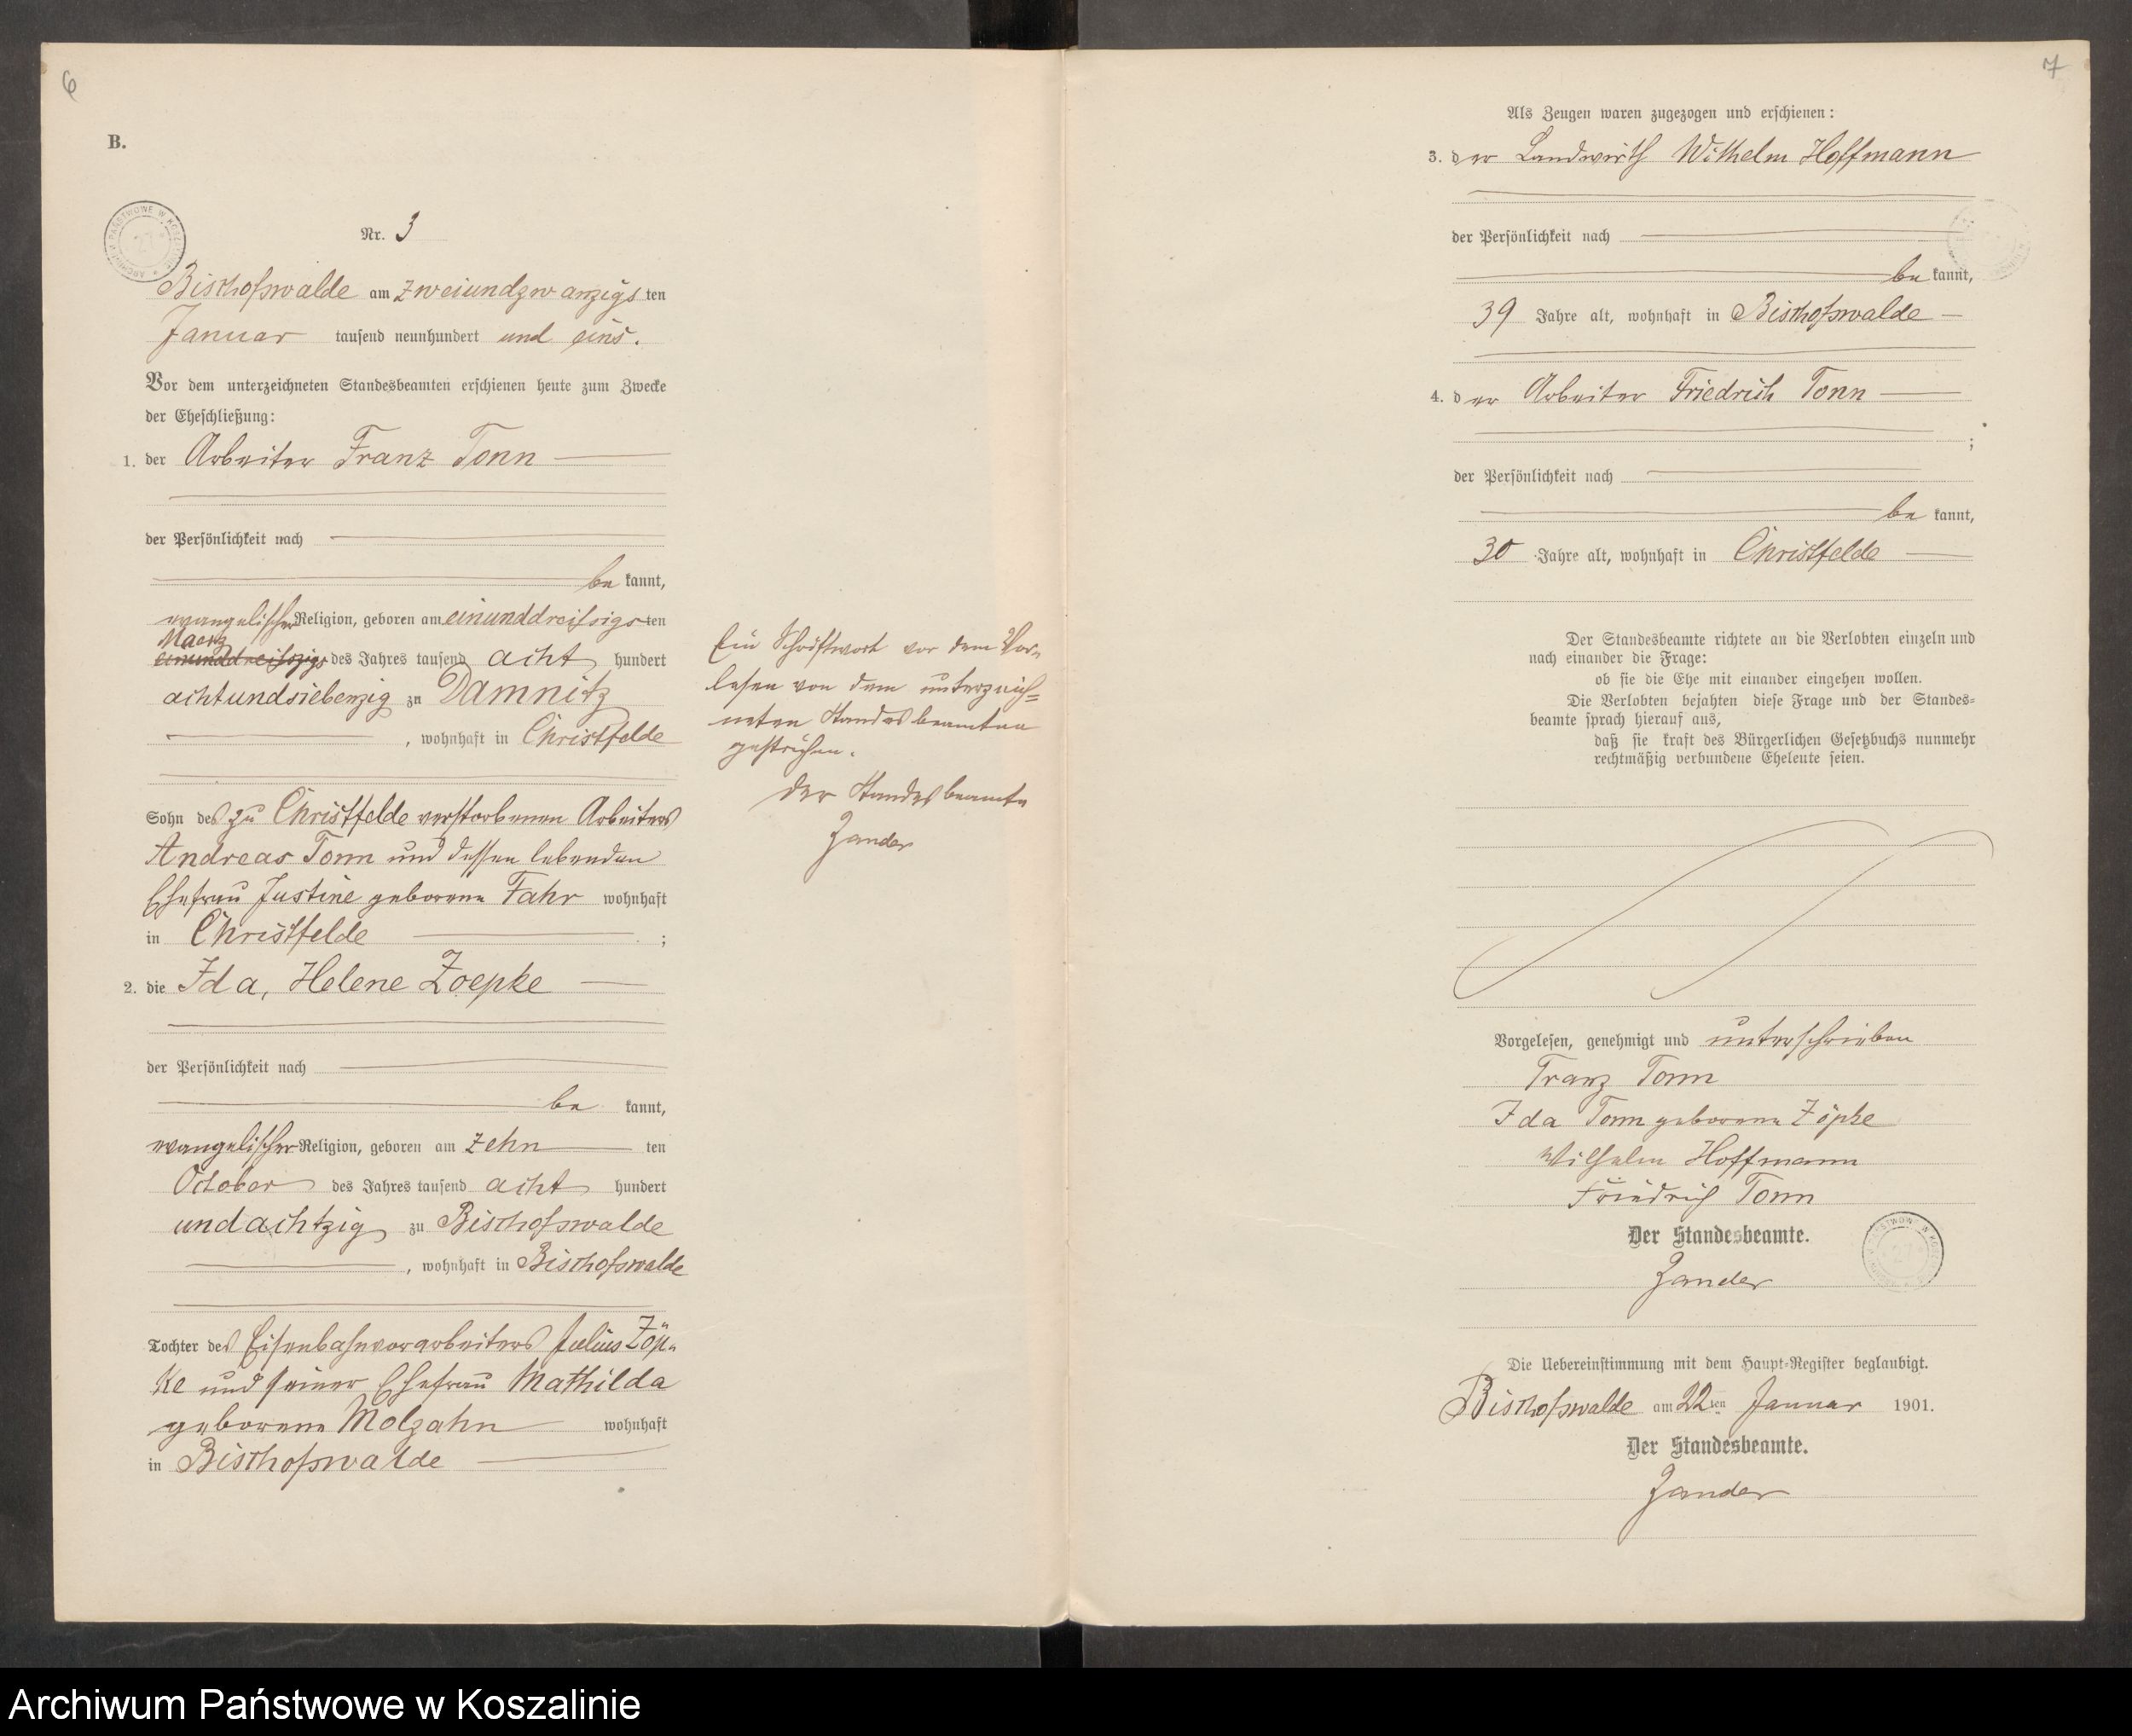 6
B.
Nr. 3
Bischofswalde am zweiundzwanzigsten
Januar tausend neunhundert und eins.
Vor dem unterzeichneten Standesbeamten erschienen heute zum Zwecke
der Eheschließung:
1. der Arbeiter Franz Tonn
der Persönlichkeit nach
be kannt,
evangelischer Religion, geboren am einunddreissigsten
Maerz
einunddreissigs des Jahres tausend acht hundert
achtundsiebenzig zu Damnitz
, wohnhaft in Christfelde
Sohn des zu Christfelde verstorbenen Arbeiters
Andreas Tonn und dessen lebenden
Ehefrau Justine geborene Fahr wohnhaft
in Christfelde ;
2. die Ida, Helene Zoepke
der Persönlichkeit nach
be kannt,
evangelischer Religion, geboren am zehn ten
October des Jahres tausend acht hundert
undachtzig zu Bischofswalde
, wohnhaft in Bischofswalde
Tochter des Eisenbahnvorarbeiters Julius Zöp-
ke und seiner Ehefrau Mathilda
geborene Molzahn wohnhaft
in Bischofswalde
Ein Schriftwort vor dem Vor-
lesen von dem unterzeich-
neten Standesbeamten
gestrichen.
Der Standesbeamte
Zander
7
Als Zeugen waren zugezogen und erschienen:
3. der Landwirth Wilhelm Hoffmann
der Persönlichkeit nach
be kannt,
39 Jahre alt, wohnhaft in Bischofswalde
4. der Arbeiter Friedrich Tonn
;
der Persönlichkeit nach
be kannt,
30 Jahre alt, wohnhaft in Christfelde
Der Standesbeamte richtete an die Verlobten einzeln und
nach einander die Frage:
ob sie die Ehe mit einander eingehen wollen.
Die Verlobten bejahten diese Frage und der Standes=
beamte sprach hierauf aus,
daß sie kraft des Bürgerlichen Gesetzbuchs nunmehr
rechtmäßig verbundene Eheleute seien.
Vorgelesen, genehmigt und unterschrieben
Franz Tonn
Ida Tonn geborene Zöpke
Wilhelm Hoffmann
Friedrich Tonn
Der Standesbeamte.
Zander
Die Uebereinstimmung mit dem Haupt=Register beglaubigt.
Bischofswalde am 22ten Januar 1901.
Der Standesbeamte.
Zander
Archiwum Państwowe w Koszalinie